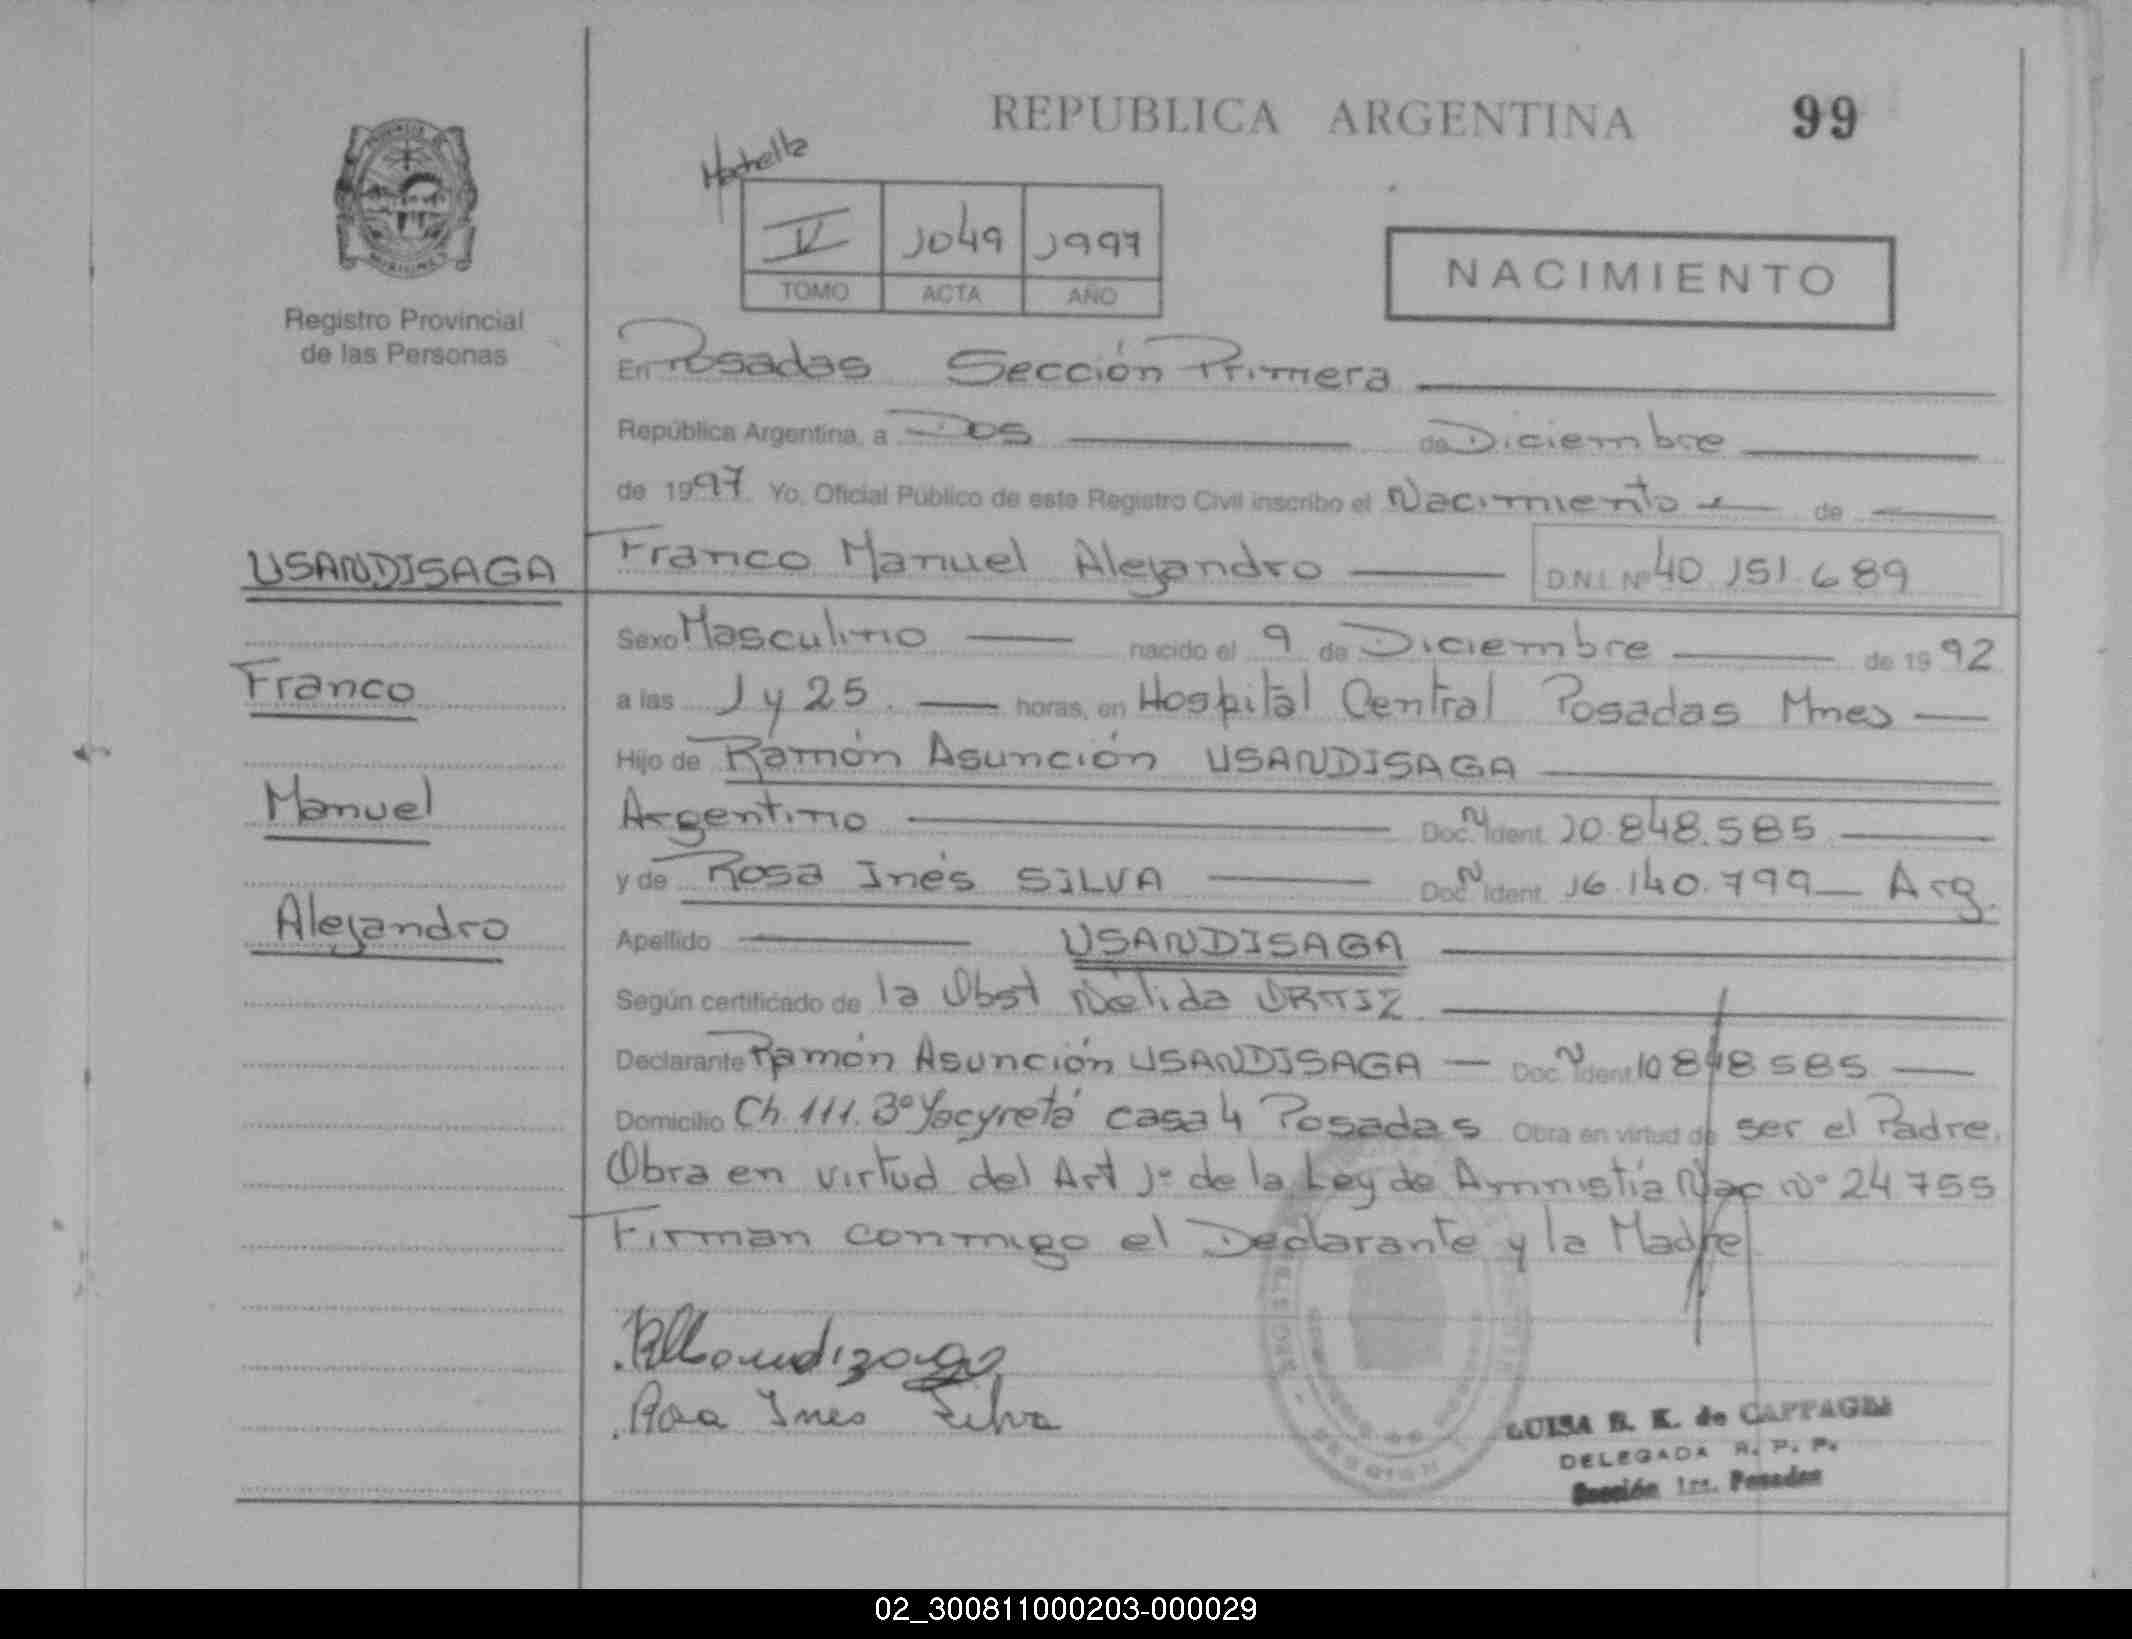 REPUBLICA ARGENTINA 99
IV 1049 1997
TOMO ACTA AÑO
NACIMIENTO
Registro Provincial
de las Personas
En Posadas Sección Primera
República Argentina, a Dos de Diciembre
de 1997 Yo, Oficial Público de este Registro Civil inscribo el Nacimiento de
USANDISAGA Franco Manuel Alejandro D.N.I. Nº 40.151.689
Sexo Masculino nacido el 9 de Diciembre de 1992
Franco
a las 1 y 25 horas, en Hospital Central Posadas Mnes
Hijo de Ramón Asunción USANDISAGA
Manuel
Argentino Doc. N Ident. 10.848.585
y de Rosa Inés SILVA Doc. N Ident. 16.140.799 Arg.
Alejandro
Apellido USANDISAGA
Según certificado de la Obst Nélida ORTIZ
Declarante Ramón Asunción USANDISAGA Doc. N Ident. 10 848 585
Domicilio Ch. 111. 3º Yacyretá casa 4 Posadas Obra en virtud de ser el Padre.
Obra en virtud del Art 1º de la Ley de Amnistía Nac Nº 24755
Firman conmigo el Declarante y la Madre
Rosa Ines Silva
LUISA E. K. de CAPPAGLI
DELEGADA R. P. P.
Sección 1ra. Posadas
02_300811000203-000029